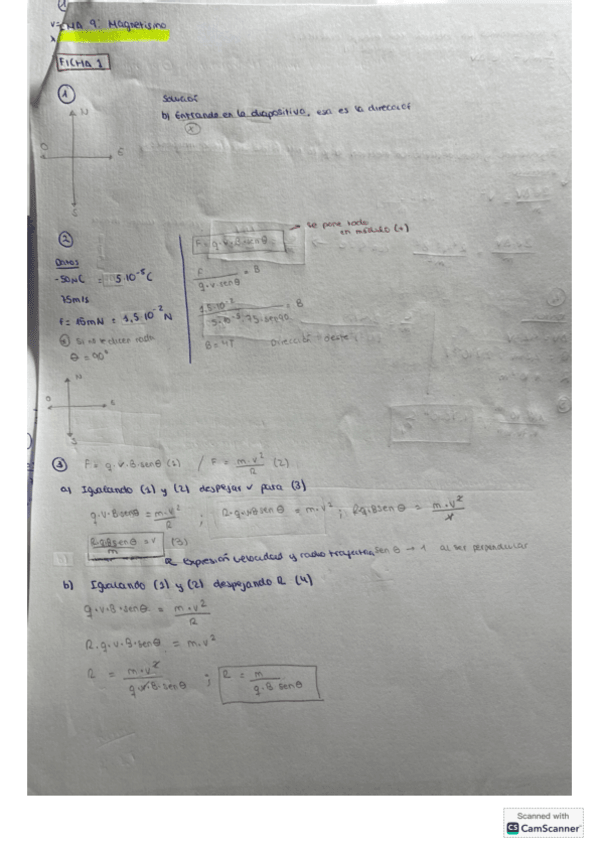 TEMA 9: Magnetismo
FICHA 1
1
N
O
E
S
Solución
b) Entrando en la diapositiva, esa es la dirección
(x)
2
F = q·v·B·senθ
se pone todo
en módulo (+)
Datos
-50 µC = 5·10⁻⁵ C
75 m/s
F = 15 mN = 1,5·10⁻² N
Si no te dicen nada
θ = 90°
F / q·v·senθ = B
1,5·10⁻² / 5·10⁻⁵·75·sen90 = B
B = 4T
Dirección oeste
N
O
E
S
3
F = q·v·B·senθ (1) / F = m·v²/R (2)
a) Igualando (1) y (2) despejar v para (3)
q·v·B senθ = m·v²/R ; R·q·v·B senθ = m·v² ; R·q·B senθ = m·v²/v
R·q·B senθ / m = v (3)
R Expresión velocidad y radio trayectoria, sen θ → 1 al ser perpendicular
b) Igualando (1) y (2) despejando R (4)
q·v·B·senθ = m·v²/R
R·q·v·B·senθ = m·v²
R = m·v² / q·v·B·senθ ; R = m / q·B senθ
Scanned with
CS CamScanner